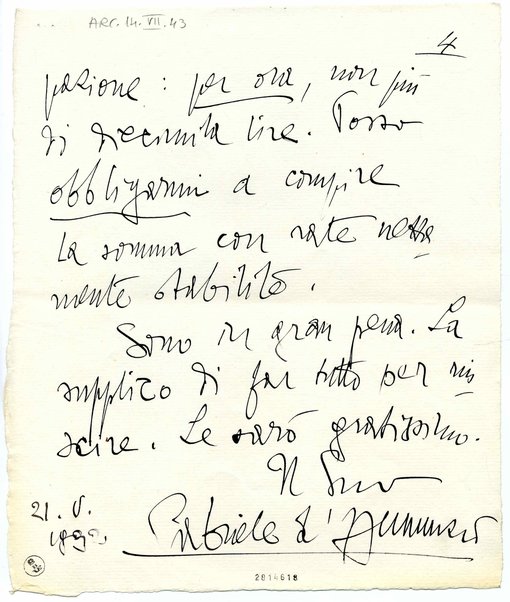 ARC. 14. VII. 43
4
pazione : per ora, non più
di diecimila lire. Posso
obbligarmi a compire
la somma con rate netta
mente stabilite.
Sono in gran pena. La
supplico di far tutto per riu
scire. Le sarò gratissimo.
Il Suo
Gabriele d'Annunzio
21. V.
2814618